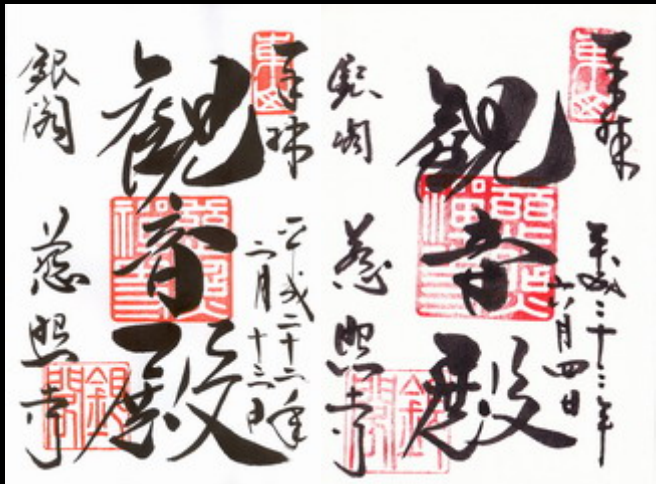 奉拝
平成二十三年
六月四日
観音殿
銀閣
慈照寺
奉拝
平成二十二年
二月十三日
観音殿
銀閣
慈照寺